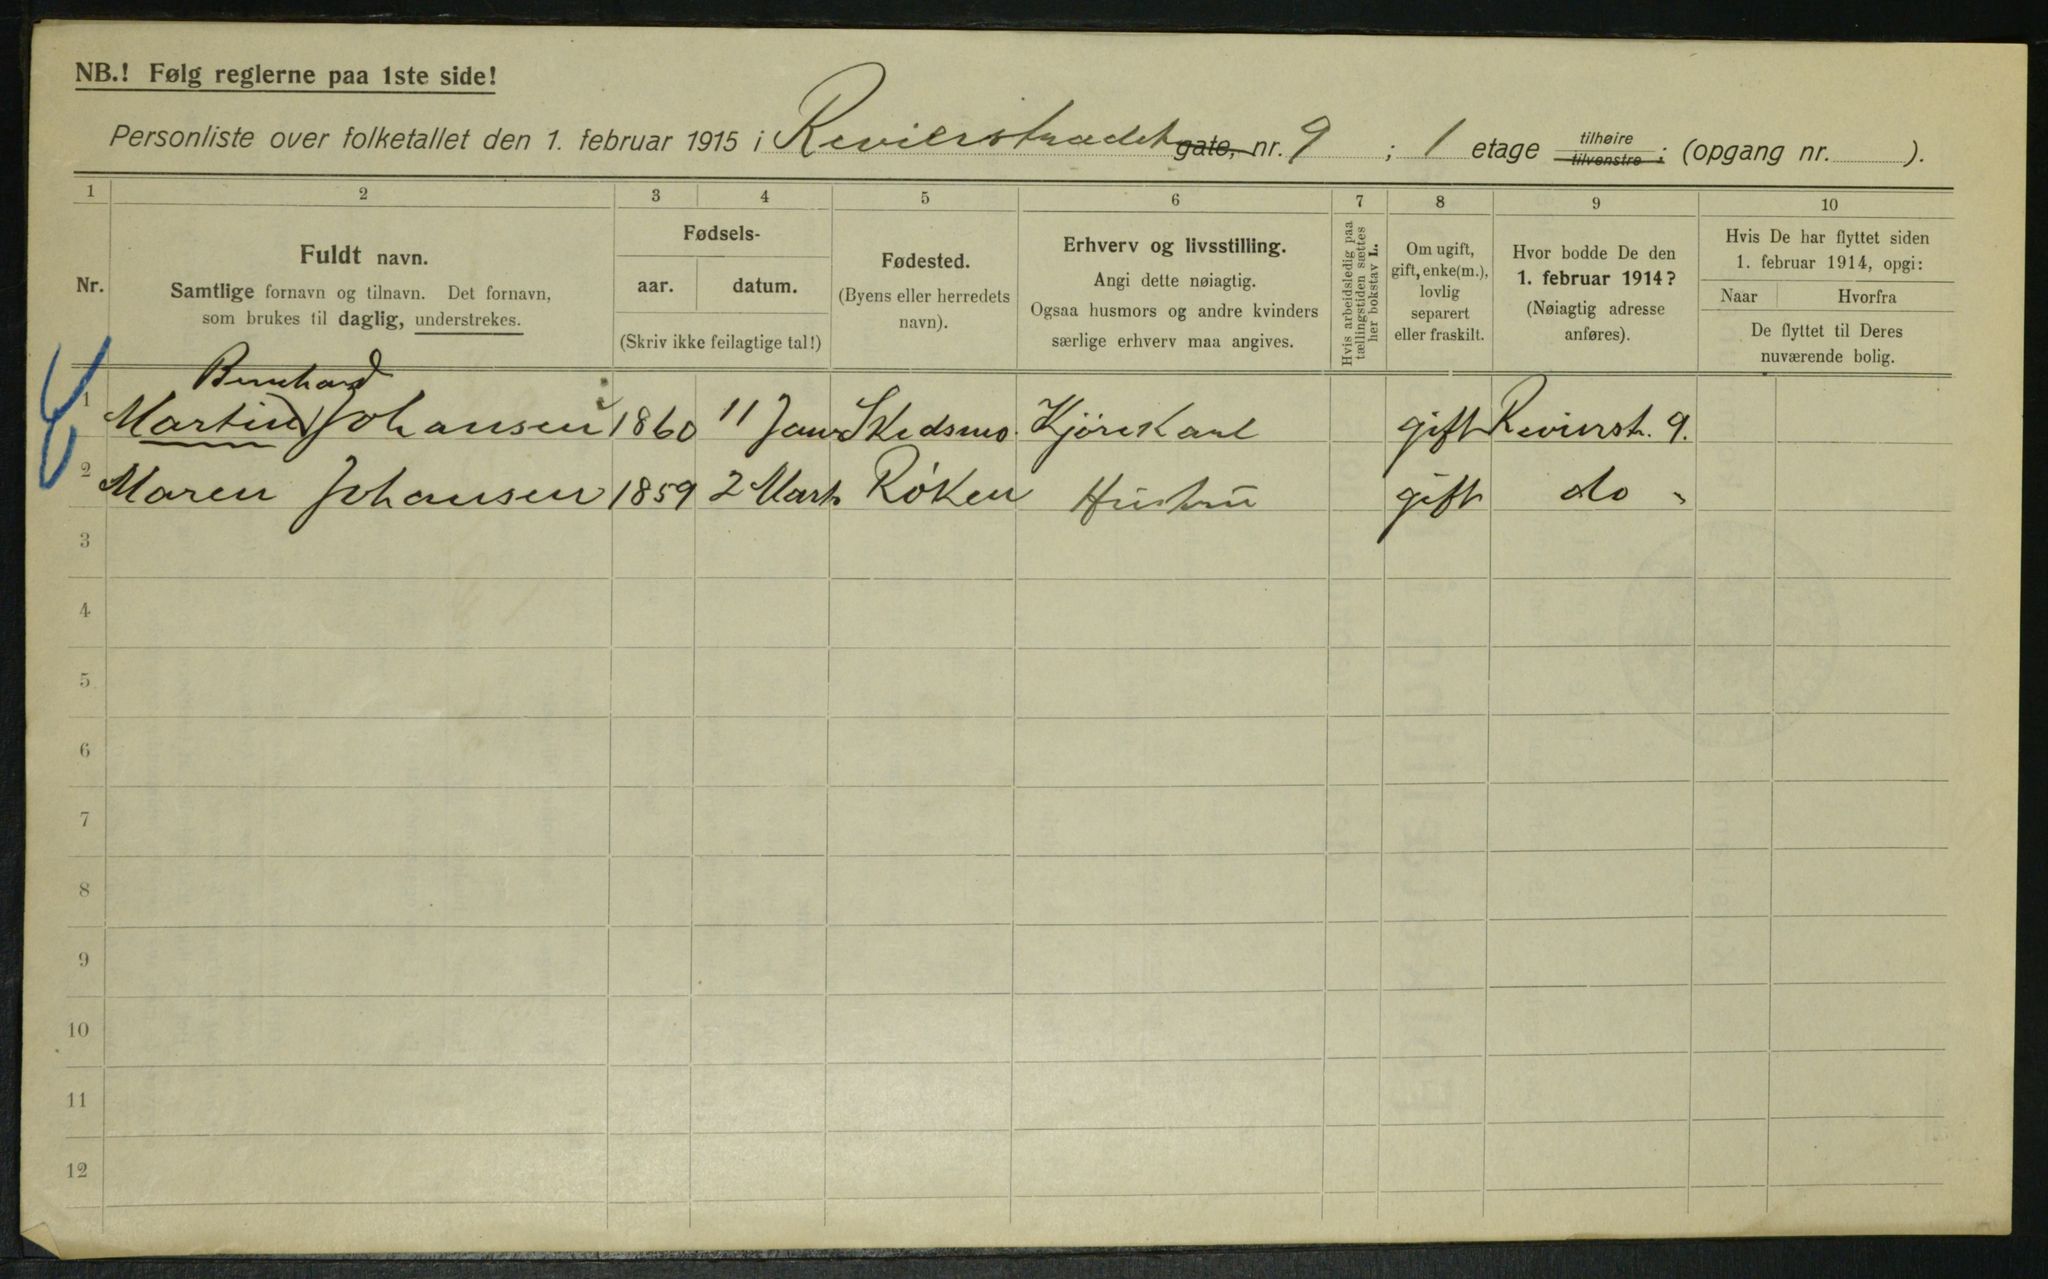 NB.! Følg reglerne paa 1ste side!
Personliste over folketallet den 1. februar 1915 i Revierstrædet gate, nr. 9 ; 1 etage tilhøire tilvenstre ; (opgang nr. ).
1 2 3 4 5 6 7 8 9 10
Nr.
Fuldt navn.
Samtlige fornavn og tilnavn. Det fornavn,
som brukes til daglig, understrekes.
Fødsels-
aar. datum.
(Skriv ikke feilagtige tal!)
Fødested.
(Byens eller herredets
navn).
Erhverv og livsstilling.
Angi dette nøiagtig.
Ogsaa husmors og andre kvinders
særlige erhverv maa angives.
Hvis arbeidsledig paa
tællingstiden sættes
her bokstav L.
Om ugift,
gift, enke(m.),
lovlig
separert
eller fraskilt.
Hvor bodde De den
1. februar 1914?
(Nøiagtig adresse
anføres).
Hvis De har flyttet siden
1. februar 1914, opgi:
Naar Hvorfra
De flyttet til Deres
nuværende bolig.
Bernhard
1 Martin Johansen 1860 11 Jan Skedsmo. Kjørekarl gift Revierstr. 9.
2 Maren Johansen 1859 2 Marts Røken Hustru gift do
3
4
5
6
7
8
9
10
11
12